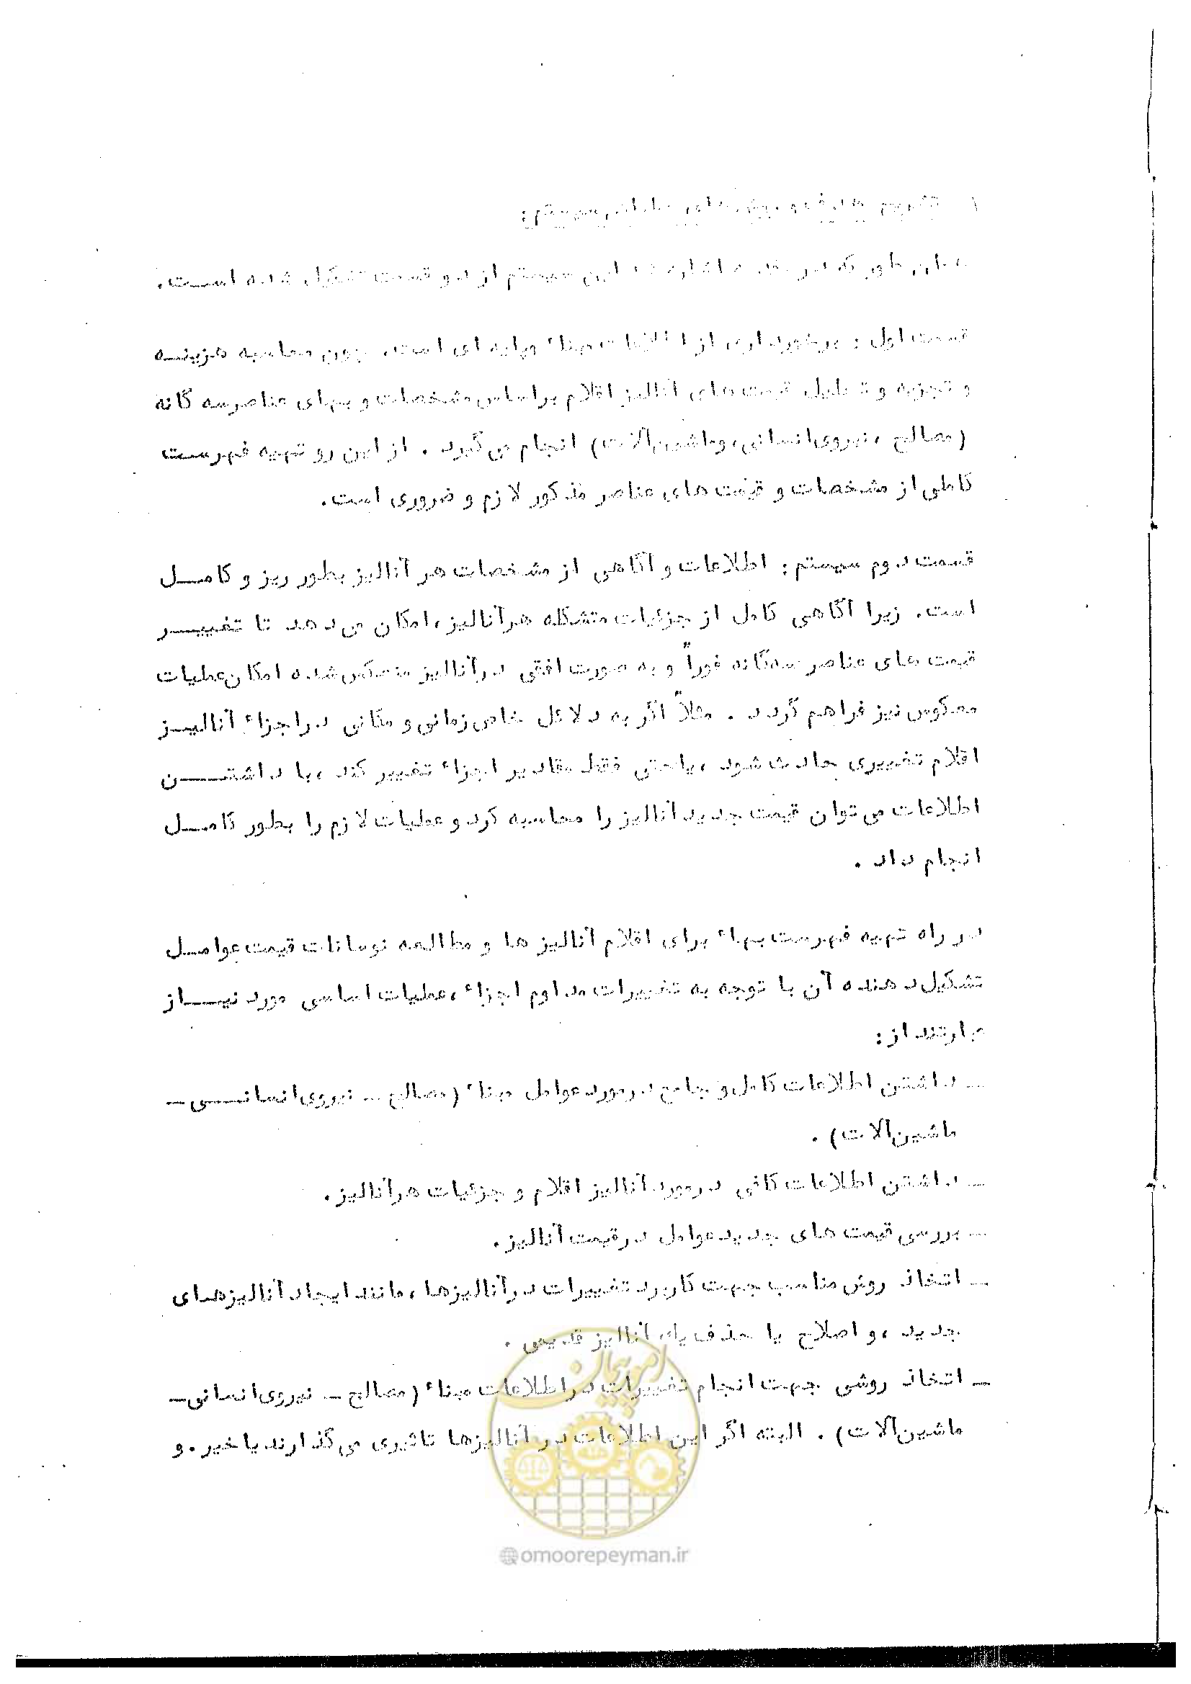 همان طور که در مقدمه اشاره شد این سیستم از دو قسمت تشکیل شده است.
قسمت اول : برخورداری از اطلاعات مبناء وپایه ای است. چون محاسبه هزینه
و تجزیه و تحلیل قیمت های آنالیز اقلام براساس مشخصات و بهای عناصرسه گانه
(مصالح ، نیروی‌انسانی، وماشین‌آلات) انجام می‌گیرد . از این رو تهیه فهرست
کاملی از مشخصات و قیمت های عناصر مذکور لازم و ضروری است.
قسمت دوم سیستم : اطلاعات و آگاهی از مشخصات هر آنالیز بطور ریز و کامل
است. زیرا آگاهی کامل از جزئیات متشکله هرآنالیز، امکان می‌دهد تا تغییر
قیمت های عناصر سه‌گانه فوراً و به صورت افقی درآنالیز منعکس‌شده امکان‌عملیات
معکوس نیز فراهم گردد . مثلاً اگر به دلائل خاص زمانی و مکانی دراجزاء آنالیز
اقلام تغییری حادث شود ، یاحتی فقط مقادیر اجزاء تغییر کند ، با داشتن
اطلاعات می‌توان قیمت جدید آنالیز را محاسبه کرد و عملیات لازم را بطور کامل
انجام داد .
در راه تهیه فهرست بهاء برای اقلام آنالیز ها و مطالعه نوسانات قیمت عوامل
تشکیل‌دهنده آن با توجه به تغییرات مداوم اجزاء ،عملیات اساسی مورد نیاز
عبارتند از:
ـ داشتن اطلاعات کامل و جامع درمورد عوامل مبناء (مصالح ـ نیروی‌انسانی ـ
ماشین‌آلات) .
ـ داشتن اطلاعات کافی درمورد آنالیز اقلام و جزئیات هرآنالیز.
ـ بررسی قیمت های جدید عوامل درقیمت آنالیز.
ـ اتخاذ روش مناسب جهت کاربرد تغییرات درآنالیزها ، مانند ایجاد آنالیزهای
جدید ، و اصلاح یا حذف یک آنالیز قدیمی .
ـ اتخاذ روشی جهت انجام تغییرات دراطلاعات مبناء (مصالح ـ نیروی‌انسانی ـ
ماشین‌آلات) . البته اگر این اطلاعات در آنالیزها تاثیری می‌گذارند یاخیر. و
امور پیمان
@omoorepeyman.ir